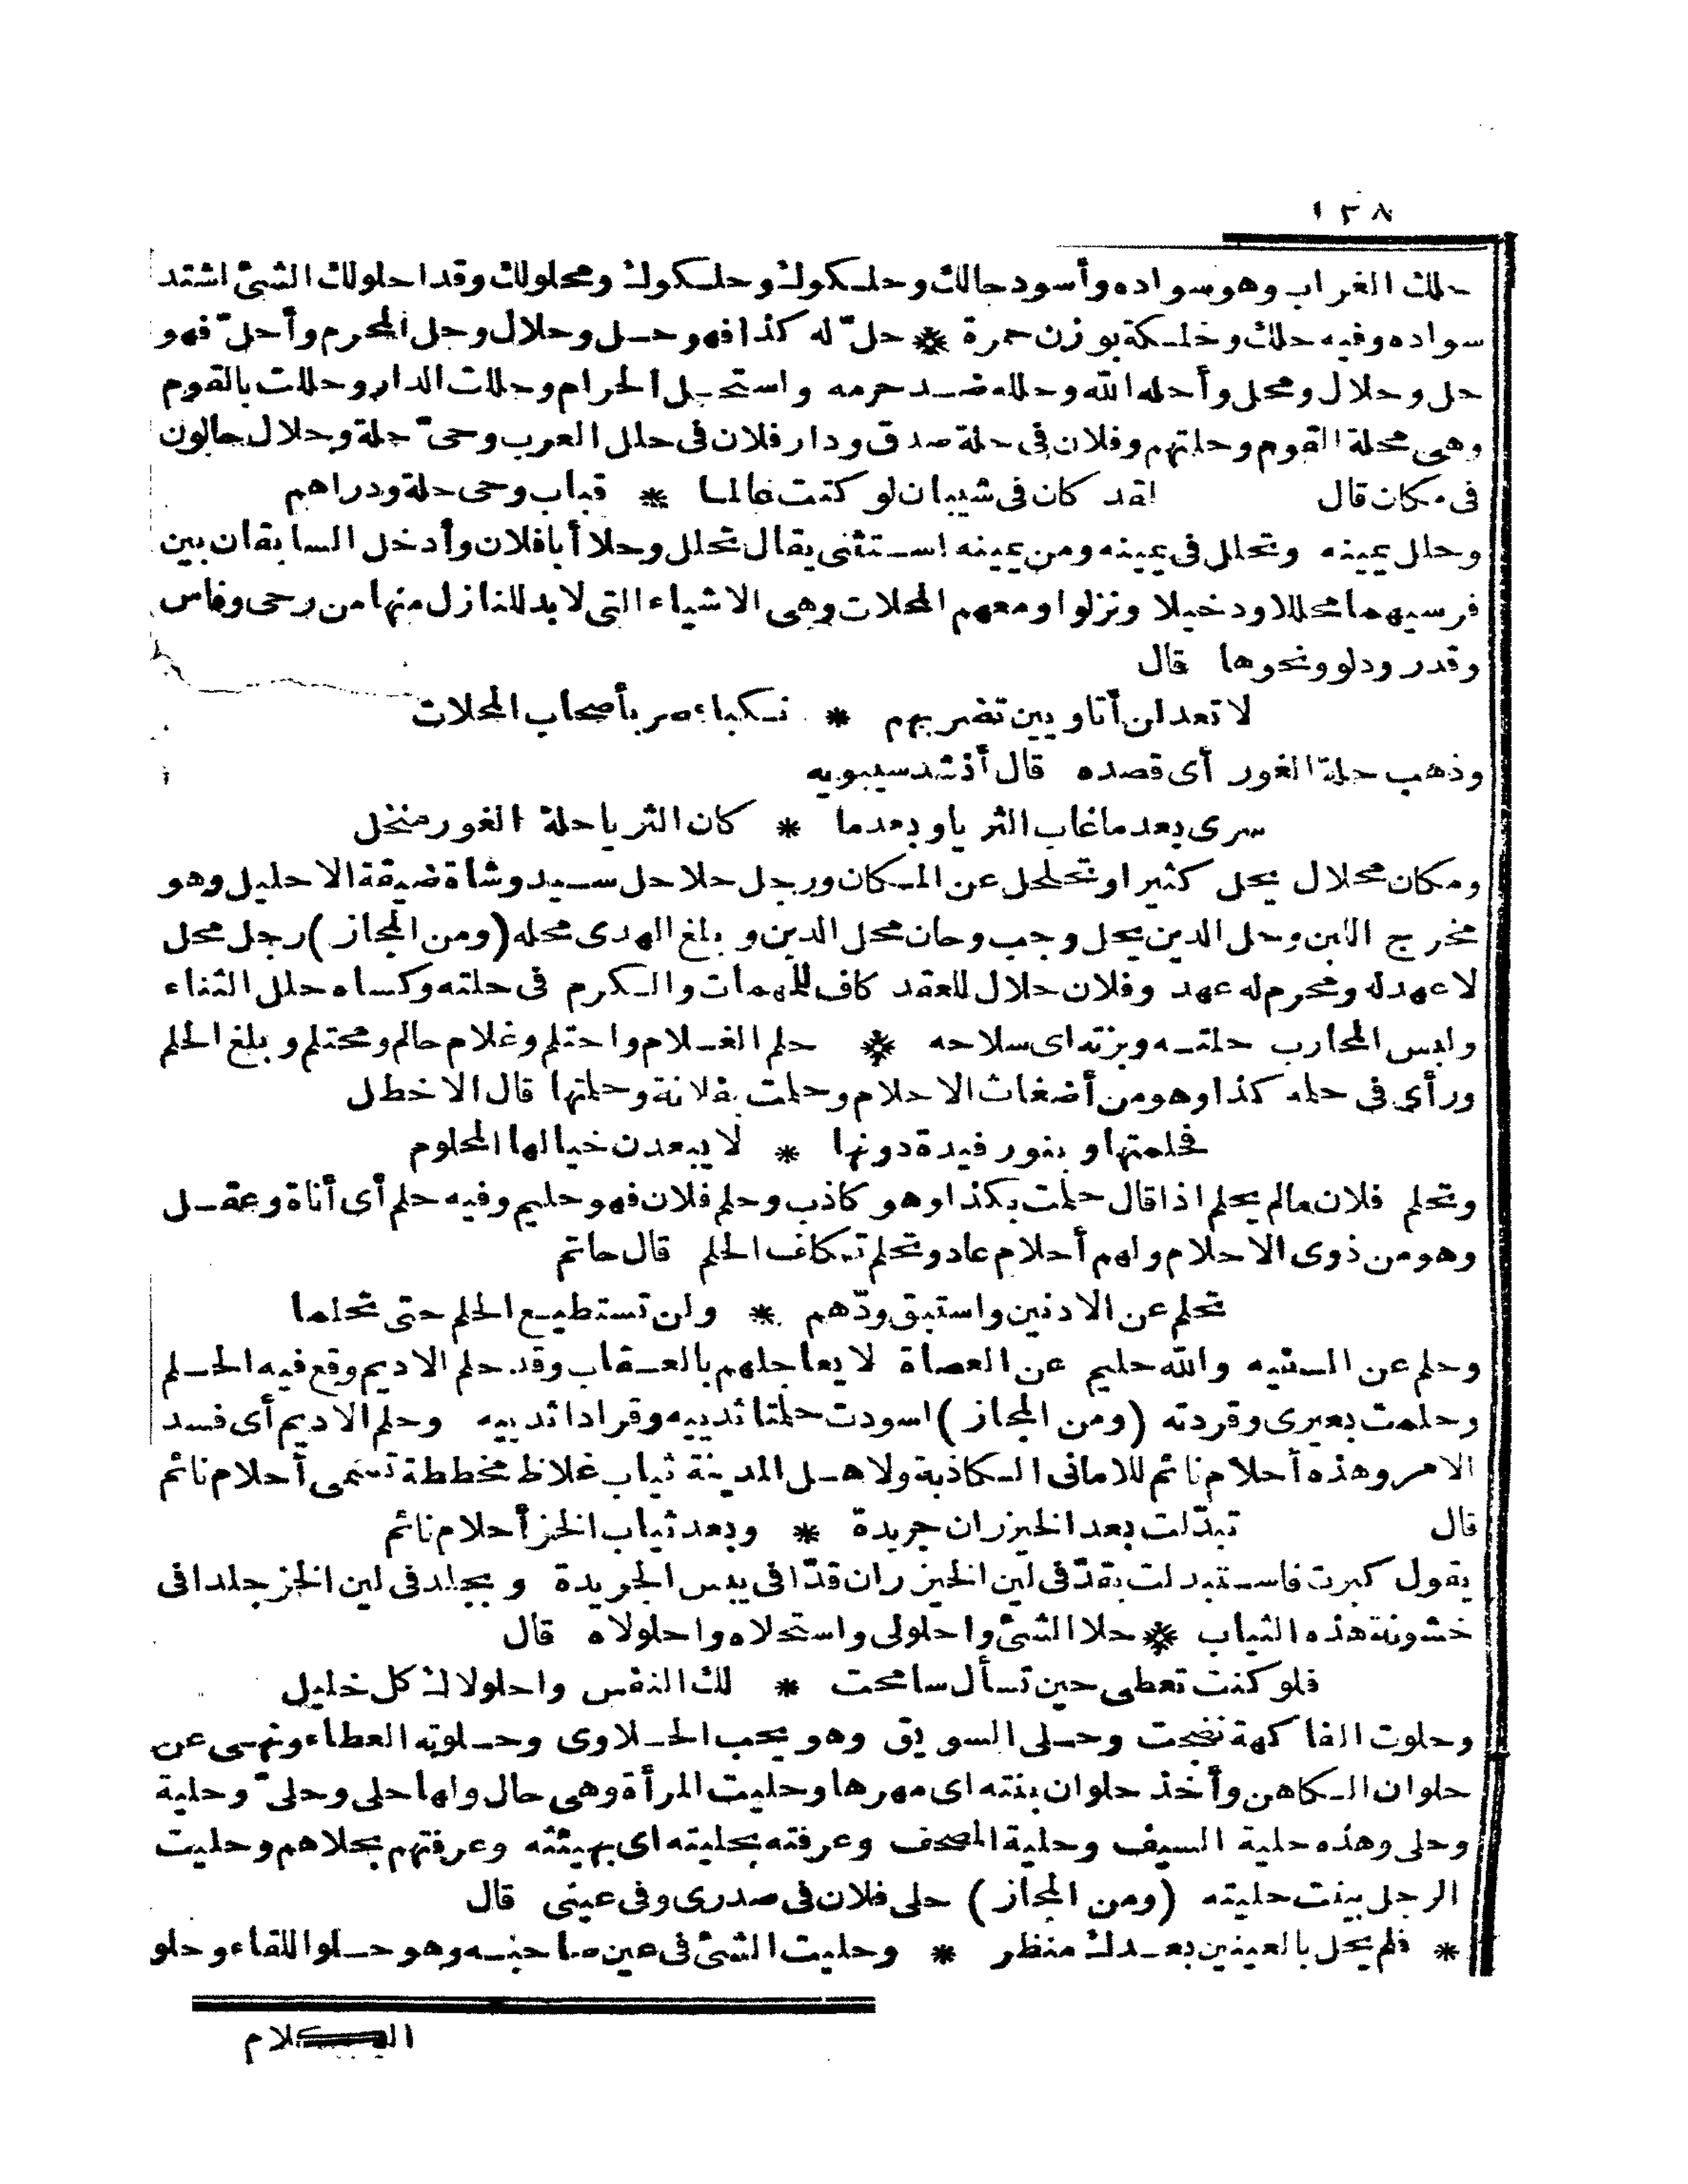 ١٢٨
حلك الغراب وهو سواده وأسود حالك وحلكوك وحلكوك ومحلولك وقد احلولك الشئ اشتد
سواده وفيه حلك وحلكة بوزن حمرة * حلّ له كذا فهو حل وحلال وحل المحرم وأحلّ فهو
حل وحلال ومحل وأحله الله وحلله ضد حرمه واستحل الحرام وحللت الدار وحللت بالقوم
وهى محلة القوم وحلتهم وفلان فى حلة صدق ودار فلان فى حلل العرب وحىّ حلة وحلال حالون
فى مكان قال لقد كان فى شيبان لو كنت عالما * قباب وحى حلة ودراهم
وحلل يمينه وتحلل فى يمينه ومن يمينه استثنى يقال تحلل وحلا أبا فلان وأدخل السابقان بين
فرسيهما محللا ودخيلا ونزلوا ومعهم المحلات وهى الاشياء التى لابد للنازل منها من رحى وفاس
وقدر ودلو ونحوها قال
لا تعدلن أتاويين تضربهم * نكباء صر بأصحاب المحلات
وذهب حلة الغور أى قصده قال أنشد سيبويه
سرى بعد ما غاب الثريا وبعدما * كان الثريا حلة الغور منخل
ومكان محلال يحل كثيرا وتحلحل عن المكان ورجل حلاحل سيد وشاة ضيقة الاحليل وهو
مخرج اللبن وحل الدين يحل وجب وحان محل الدين وبلغ الهدى محله (ومن المجاز) رجل محل
لا عهد له ومحرم له عهد وفلان حلال للعقد كاف للمهمات والكرم فى حلته وكساه حلل الثناء
ولبس المحارب حلته وبزته اى سلاحه * حلم الغلام واحتلم وغلام حالم ومحتلم وبلغ الحلم
ورأى فى حلمه كذا وهو من أضغاث الاحلام وحلمت بفلانة وحلمتها قال الاخطل
فحلمتها وبنو رفيدة دونها * لا يبعدن خيالها المحلوم
وتحلم فلان ما لم يحلم اذا قال حلمت بكذا وهو كاذب وحلم فلان فهو حليم وفيه حلم أى أناة وعقل
وهو من ذوى الاحلام ولهم أحلام عاد وتحلم تكلف الحلم قال حاتم
تحلم عن الادنين واستبق ودّهم * ولن تستطيع الحلم حتى تحلما
وحلم عن السفيه والله حليم عن العصاة لا يعاجلهم بالعقاب وقد حلم الاديم وقع فيه الحلم
وحلمت بعيرى وقردته (ومن المجاز) اسودت حلمتا ثدييه وقرادا ثدييه وحلم الاديم أى فسد
الامر وهذه أحلام نائم للامانى الكاذبة ولاهل المدينة ثياب غلاظ مخططة تسمى أحلام نائم
قال تبدّلت بعد الخيزران جريدة * وبعد ثياب الخز أحلام نائم
يقول كبرت فاستبدلت بقدّ فى لين الخيزران قدّا فى يبس الجريدة وبجلد فى لين الخز جلدا فى
خشونة هذه الثياب * حلا الشئ واحلولى واستحلاه واحلولاه قال
فلو كنت تعطى حين تسأل سامحت * لك النفس واحلولاك كل خليل
وحلوت الفاكهة نضجت وحلى السويق وهو يحب الحلاوى وحلوته العطاء ونهى عن
حلوان الكاهن وأخذ حلوان بنته اى مهرها وحليت المرأة وهى حال ولها حلى وحلىّ وحلية
وحلى وهذه حلية السيف وحلية المصحف وعرفته بحليته اى بهيئته وعرفتهم بحلاهم وحليت
الرجل بينت حليته (ومن المجاز) حلى فلان فى صدرى وفى عينى قال
* فلم يحل بالعينين بعدك منظر * وحليت الشئ فى عين صاحبه وهو حلو اللقاء وحلو
الكلام